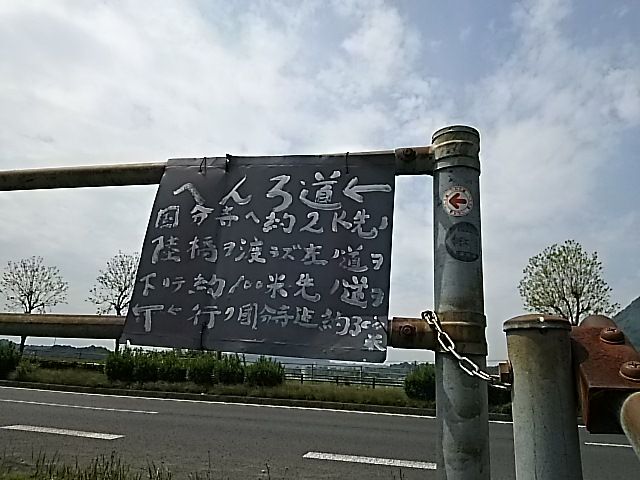 へんろ道←
国分寺へ約2K先ノ
陸橋ヲ渡ラズ左ノ道ヲ
下リテ約100米先ノ道ヲ
下←行ク国分寺迄約300米